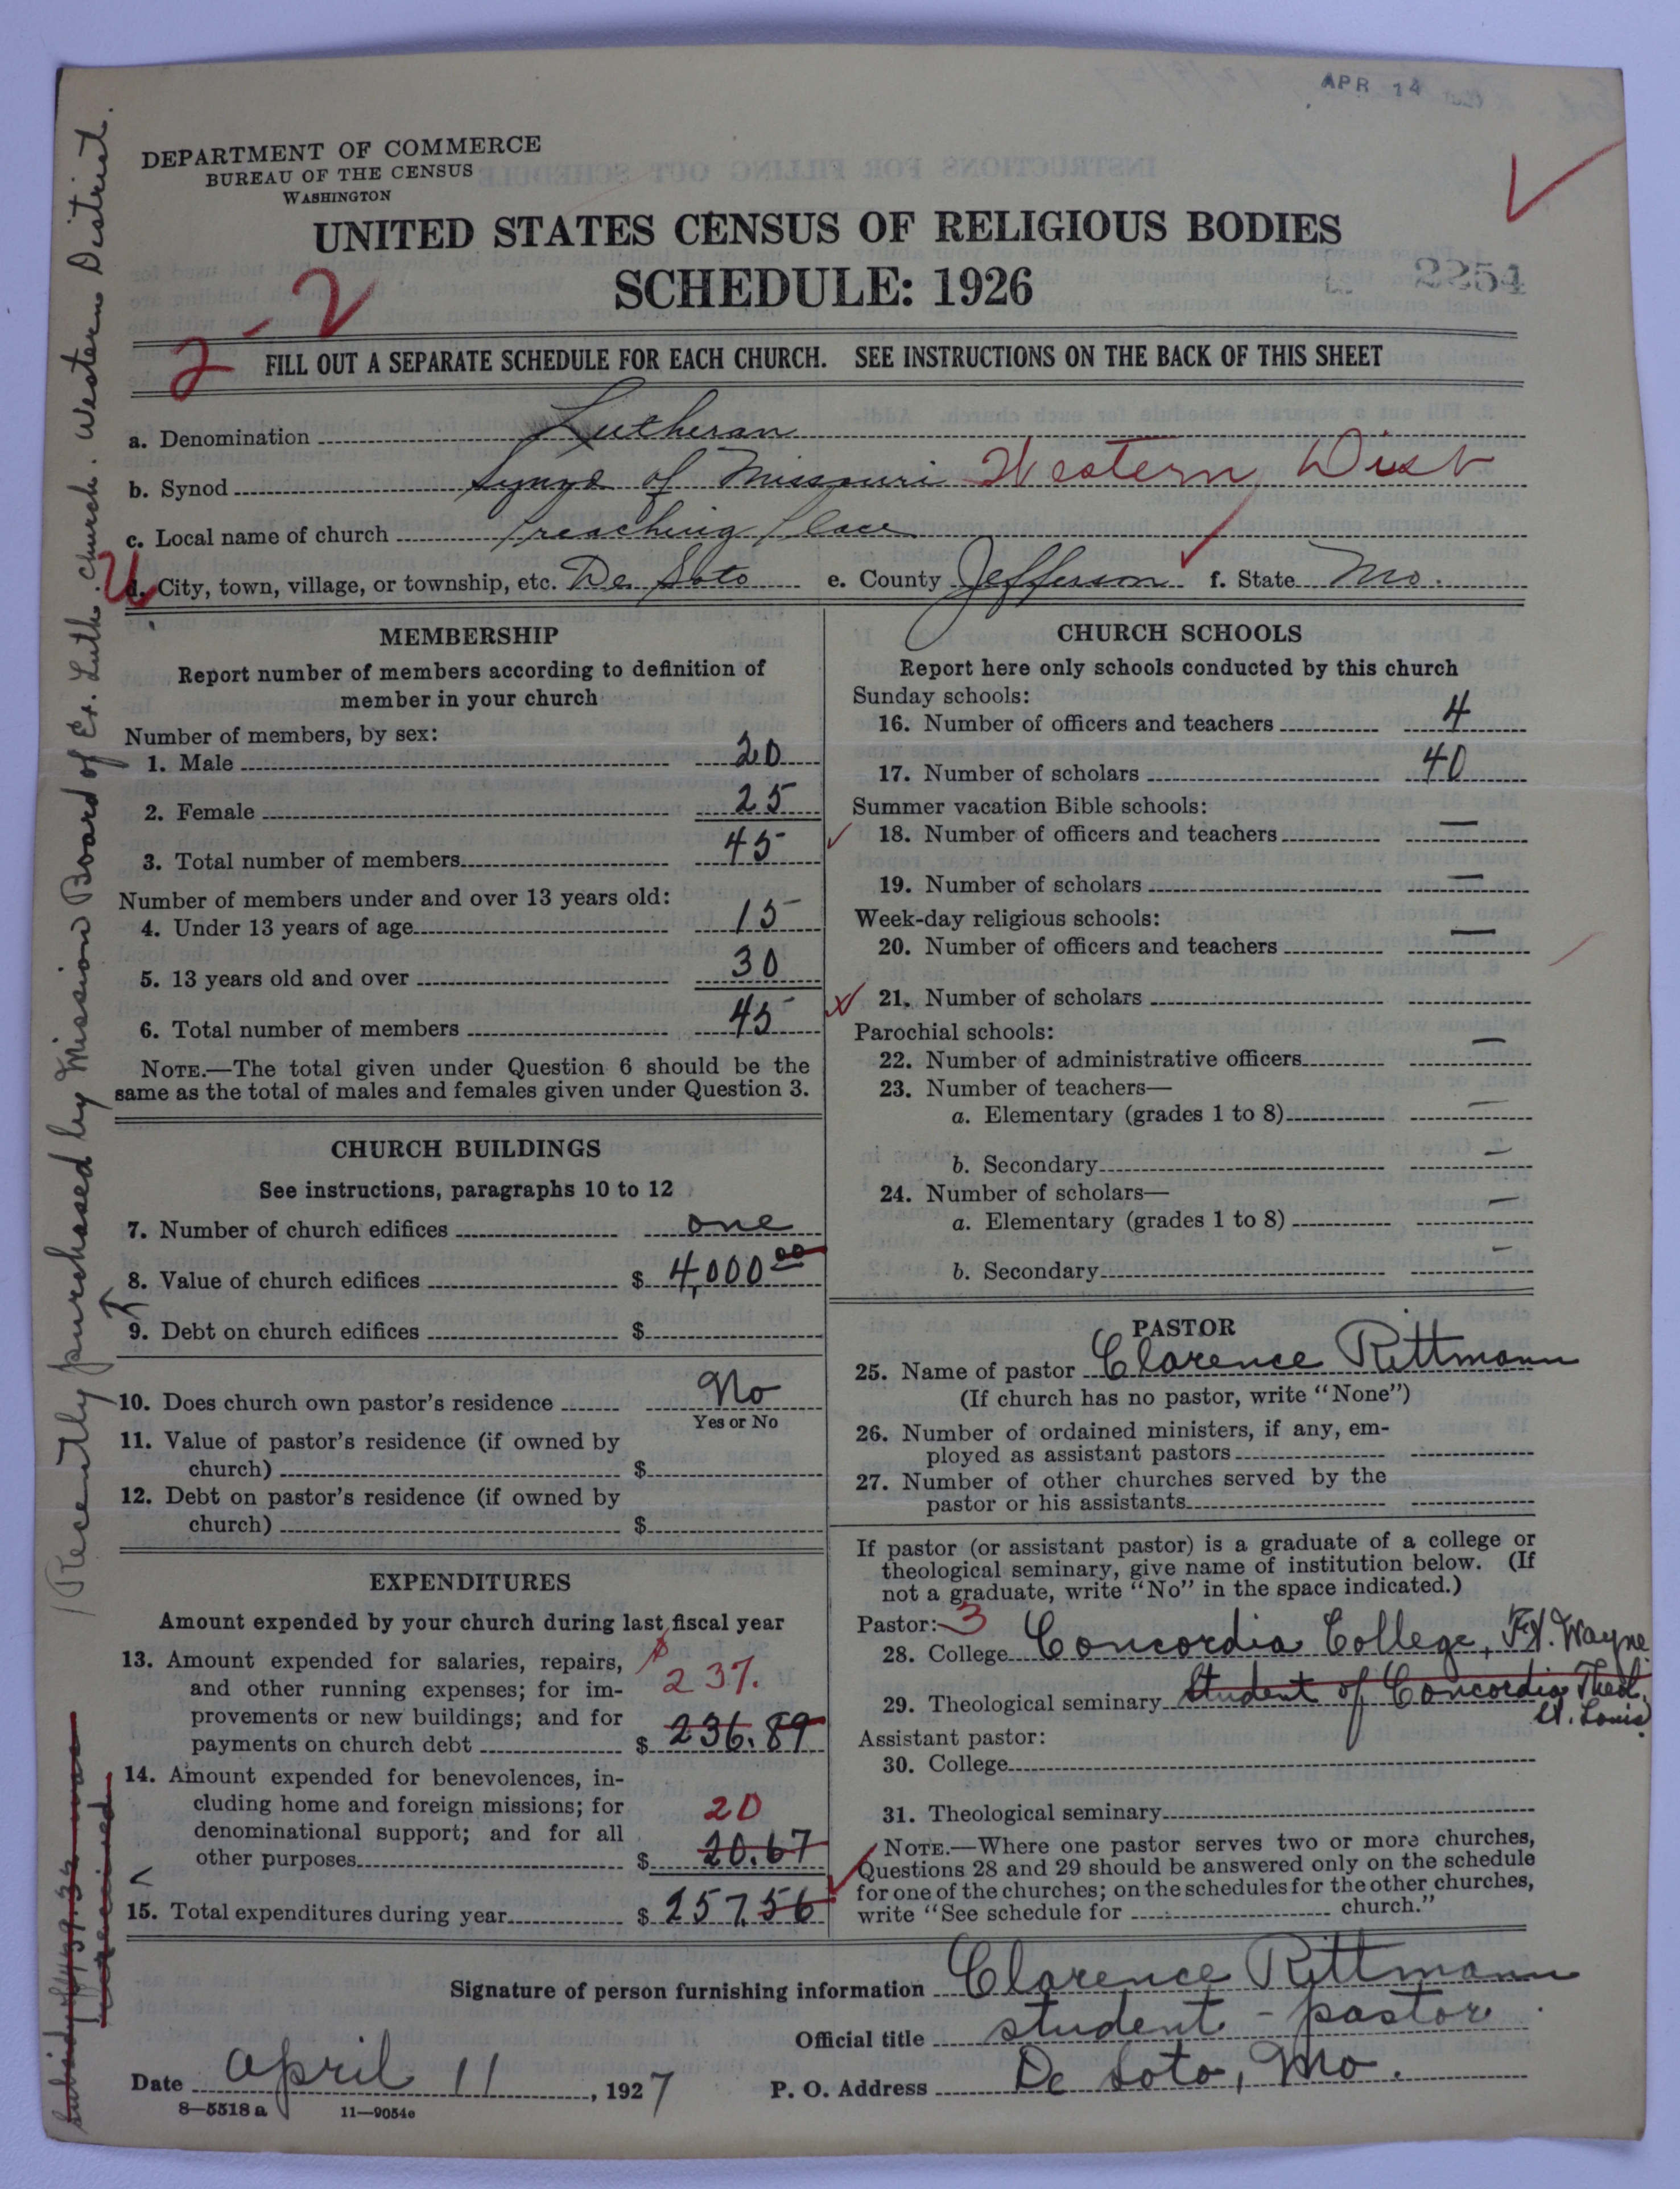 APR 14
DEPARTMENT OF COMMERCE
BUREAU OF THE CENSUS
WASHINGTON
UNITED STATES CENSUS OF RELIGIOUS BODIES
SCHEDULE: 1926
2254
2-2
FILL OUT A SEPARATE SCHEDULE FOR EACH CHURCH. SEE INSTRUCTIONS ON THE BACK OF THIS SHEET
a. Denomination Lutheran
b. Synod Synod of Missouri Western Dist
c. Local name of church Preaching Place
d. City, town, village, or township, etc. De Soto e. County Jefferson f. State Mo.
MEMBERSHIP
Report number of members according to definition of
member in your church
Number of members, by sex:
1. Male 20
2. Female 25
3. Total number of members 45
Number of members under and over 13 years old:
4. Under 13 years of age 15
5. 13 years old and over 30
6. Total number of members 45
NOTE.—The total given under Question 6 should be the
same as the total of males and females given under Question 3.
CHURCH BUILDINGS
See instructions, paragraphs 10 to 12
7. Number of church edifices one
8. Value of church edifices $ 4,000 00
9. Debt on church edifices $
10. Does church own pastor's residence No
Yes or No
11. Value of pastor's residence (if owned by
church) $
12. Debt on pastor's residence (if owned by
church) $
EXPENDITURES
Amount expended by your church during last fiscal year
13. Amount expended for salaries, repairs,
and other running expenses; for im-
provements or new buildings; and for
payments on church debt $ 236.89
$ 237.
14. Amount expended for benevolences, in-
cluding home and foreign missions; for
denominational support; and for all
other purposes $ 20.67
20
15. Total expenditures during year $ 257.56
CHURCH SCHOOLS
Report here only schools conducted by this church
Sunday schools:
16. Number of officers and teachers 4
17. Number of scholars 40
Summer vacation Bible schools:
18. Number of officers and teachers —
19. Number of scholars —
Week-day religious schools:
20. Number of officers and teachers —
21. Number of scholars
Parochial schools:
22. Number of administrative officers —
23. Number of teachers—
a. Elementary (grades 1 to 8) —
b. Secondary —
24. Number of scholars—
a. Elementary (grades 1 to 8) —
b. Secondary —
PASTOR
25. Name of pastor Clarence Rittmann
(If church has no pastor, write "None")
26. Number of ordained ministers, if any, em-
ployed as assistant pastors
27. Number of other churches served by the
pastor or his assistants
If pastor (or assistant pastor) is a graduate of a college or
theological seminary, give name of institution below. (If
not a graduate, write "No" in the space indicated.)
Pastor: 3
28. College Concordia College, Ft. Wayne
29. Theological seminary Student of Concordia Theol.
St. Louis
Assistant pastor:
30. College
31. Theological seminary
NOTE.—Where one pastor serves two or more churches,
Questions 28 and 29 should be answered only on the schedule
for one of the churches; on the schedules for the other churches,
write "See schedule for church."
Signature of person furnishing information Clarence Rittmann
Official title student - pastor
Date April 11, 1927 P. O. Address De Soto, Mo.
8—5518 a 11—9054e
Recently purchased by Mission Board of Ev. Luth. church. Western District.
received